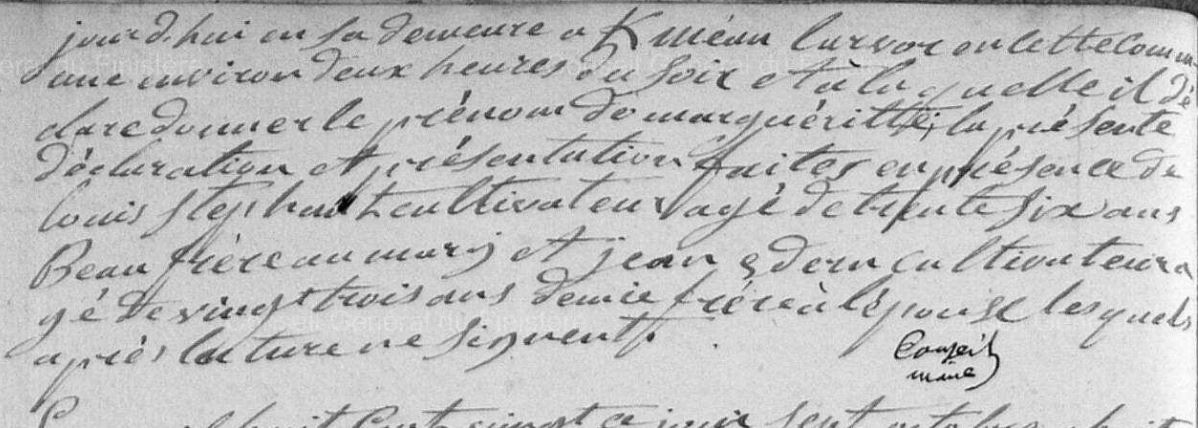 jourd.hui en sa demeure a Kméan Larvor en cette commu-
une environ deux heures du soir et à la quelle il dé
clare donner le prénom de marguéritte, la présente
déclaration et présentation faites en présence de
louis Stephant cultivateur agé de trente six ans
Beau frère au mary et jean edern cultivateur a
gé de vingt trois ans demie frère à l'épouse lesquels
après lecture ne signent.
Conseil
maire
huit cent vingt ce jour sept octobre